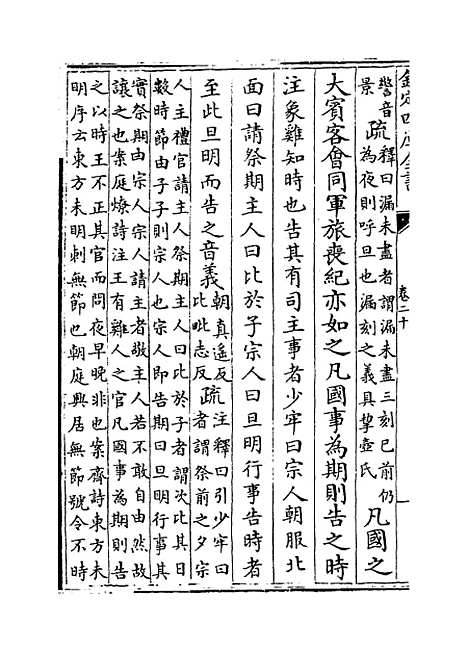 欽定四庫全書
卷二十
警音景
疏釋曰漏未盡者謂漏未盡三刻已前仍
為夜則呼旦也漏刻之義具挈壺氏
凡國之
大賓客會同軍旅喪紀亦如之凡國事為期則告之時
注象雞知時也告其有司主事者少牢曰宗人朝服北
面曰請祭期主人曰比於子宗人曰旦明行事告時者
至此旦明而告之音義
朝真遥反
比毗志反
疏
注釋曰引少牢曰
者謂祭前之夕宗
人主禮官請主人祭期主人曰比於子者謂次比其日
數時節由子子則宗人也宗人即告期曰旦明行事其
實祭期由宗人宗人請主者敬主人若不敢自由然故
讓之也案庭燎詩注王有雞人之官凡國事為期則告
之以時王不正其官而問夜早晚非也案齊詩東方未
明序云東方未明刺無節也朝庭興居無節號令不時